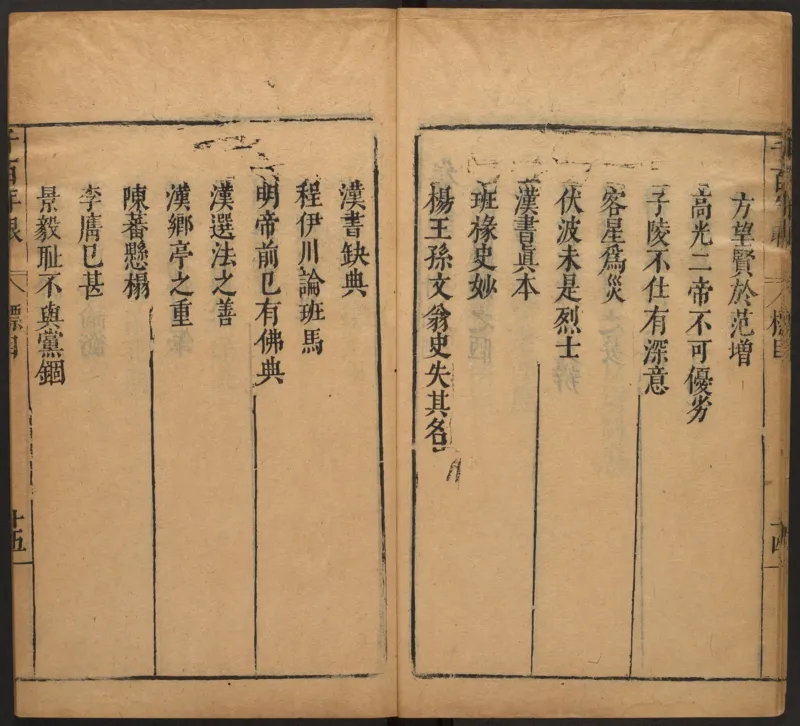 方望賢於范增
高光二帝不可優劣
子陵不仕有深意
客星爲災
伏波未是烈士
漢書眞本
班椽史妙
楊王孫文翁史失其名
漢書缺典
程伊川論班馬
明帝前已有佛典
漢選法之善
漢鄉亭之重
陳蕃懸榻
李膺已甚
景毅恥不與黨錮
標目
十五